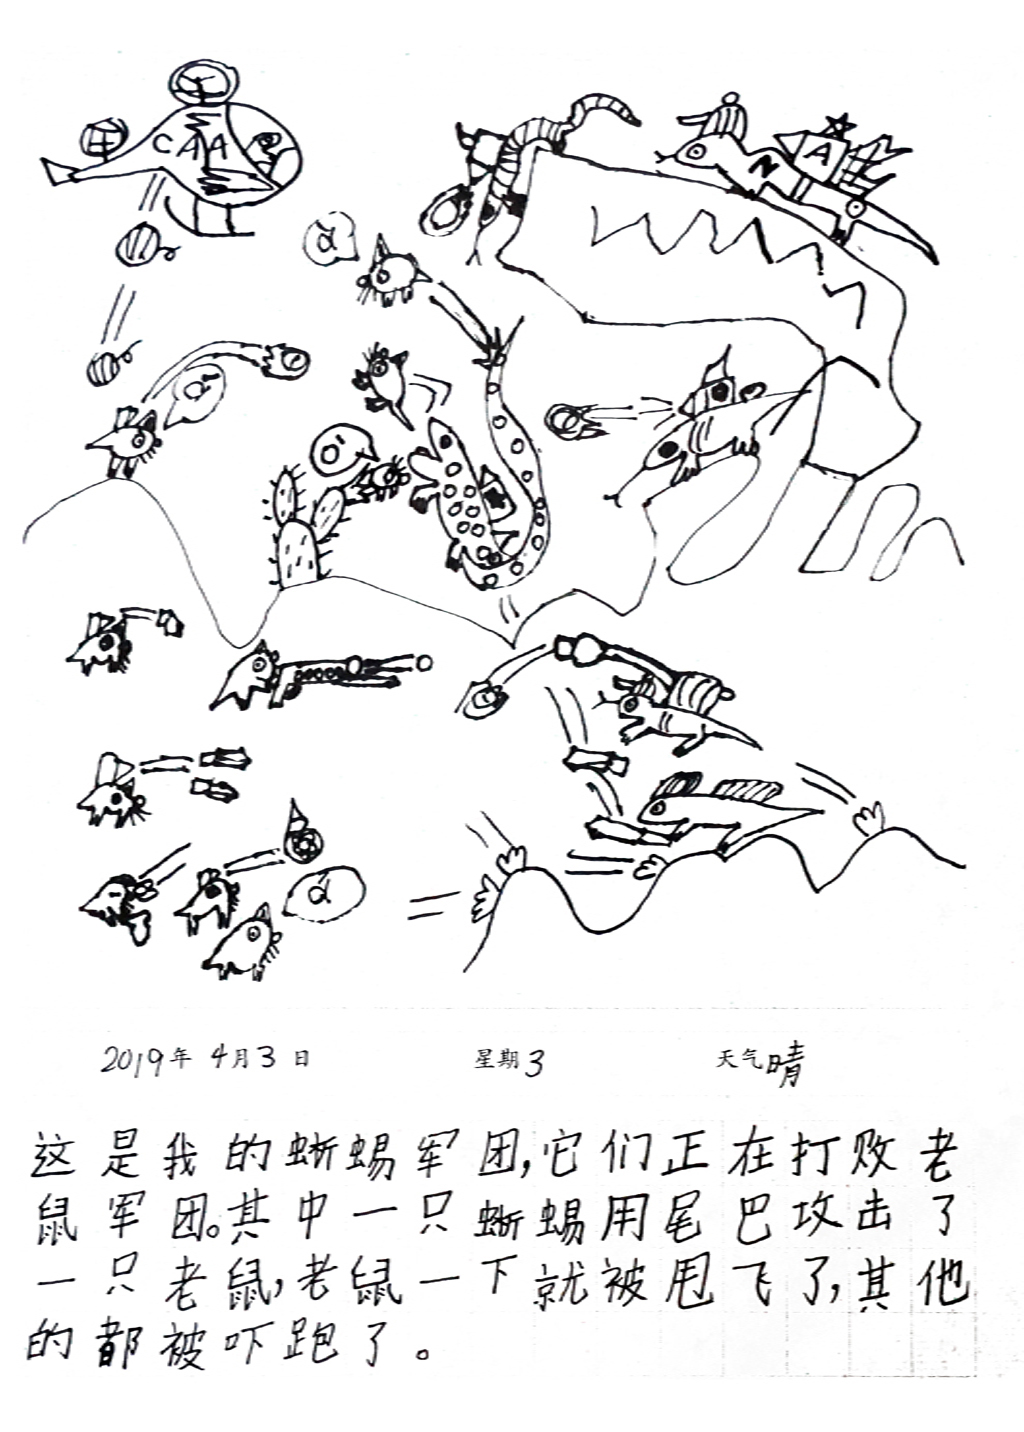 CAA
N A
2019年 4月3日 星期3 天气晴
这是我的蜥蜴军团,它们正在打败老
鼠军团。其中一只蜥蜴用尾巴攻击了
一只老鼠,老鼠一下就被甩飞了,其他
的都被吓跑了。